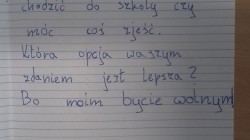 chodzić do szkoły czy
móc coś zjeść.
Która opcja waszym
zdaniem jest lepsza?
Bo moim bycie wolnym